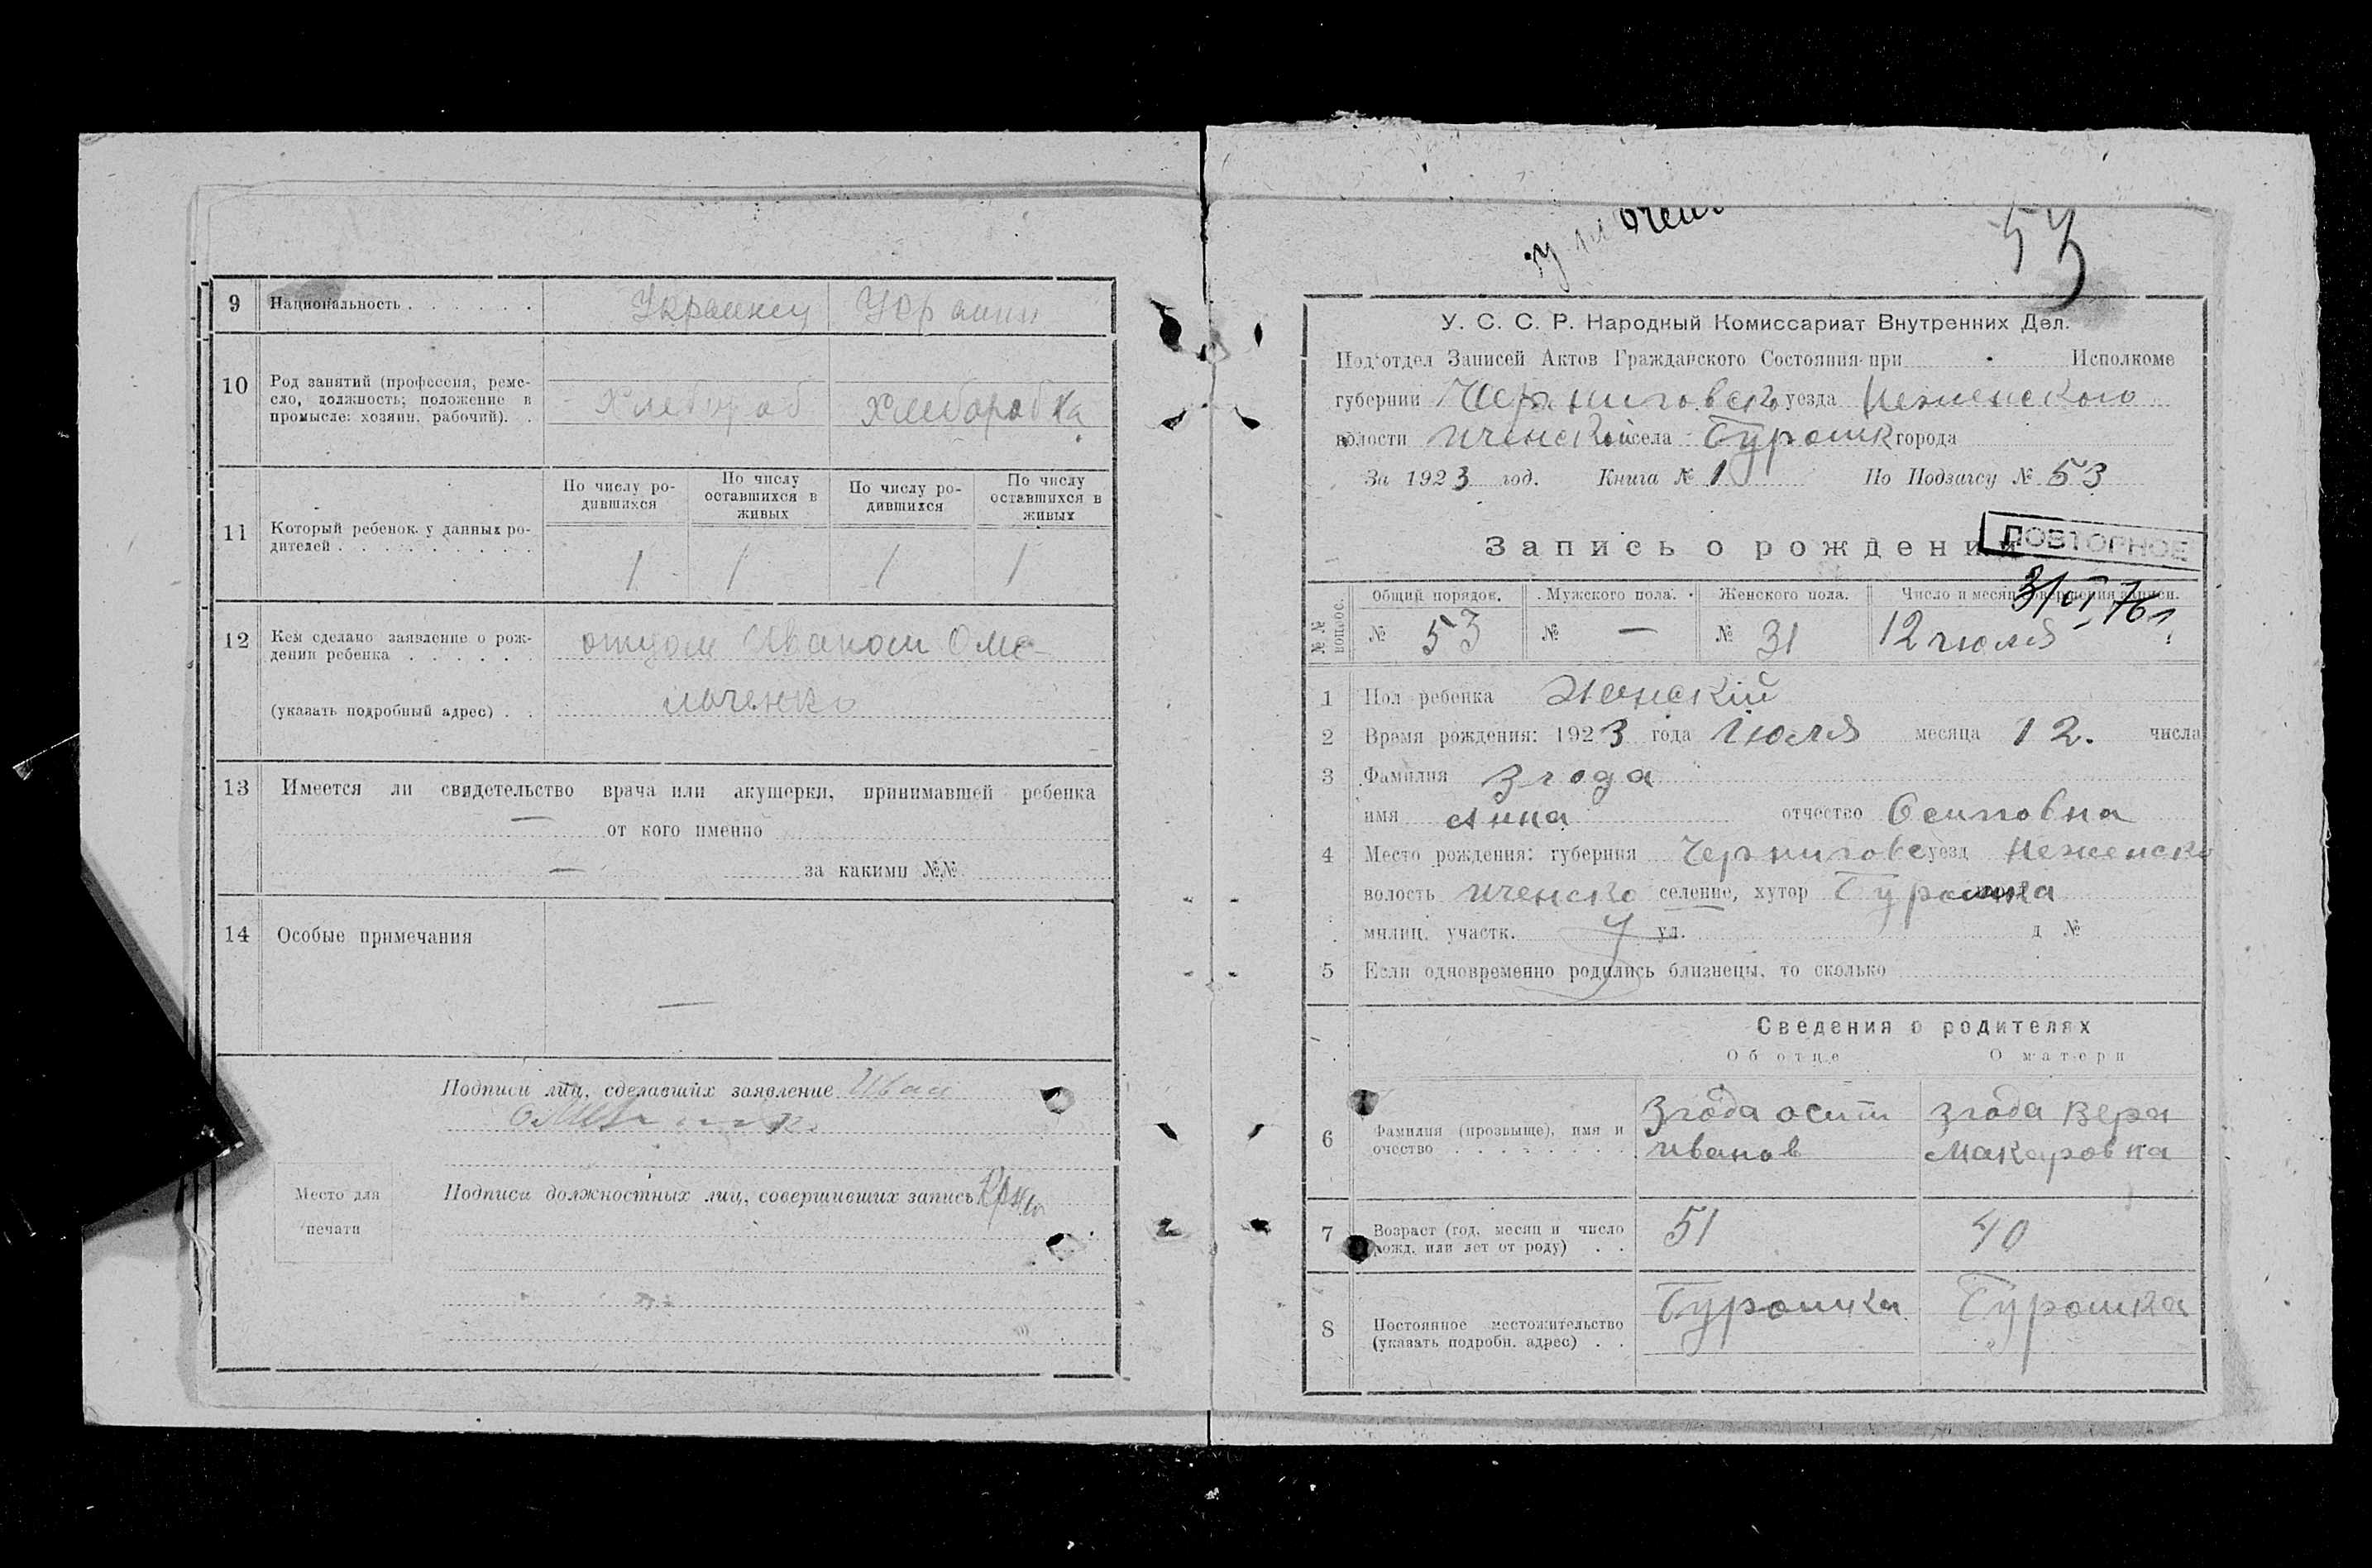 9 Национальность Украинец Украин
10 Род занятий (профессия, ремесло, должность; положение в промысле: хозяин, рабочий). Хлебороб Хлеборобка
По числу родившихся По числу оставшихся в живых По числу родившихся По числу оставшихся в живых
11 Который ребенок у данных родителей 1 1 1 1
12 Кем сделано заявление о рождении ребенка отцом Иваном Оме-
(указать подробный адрес) льченко
13 Имеется ли свидетельство врача или акушерки, принимавшей ребенка
— от кого именно
— за какими №№
14 Особые примечания —
Подписи лиц, сделавших заявление Иван
Место для печати
Подписи должностных лиц, совершивших запись
53
У. С. С. Р. Народный Комиссариат Внутренних Дел.
Под'отдел Записей Актов Гражданского Состояния при Исполкоме
губернии Черниговско уезда Неженского
волости Иченской села Буромк города
За 1923 год. Книга № 1 По Подзагсу № 53
Запись о рождении
ПОВТОРНОЕ
№ № Общий порядок. Мужского пола. Женского пола. Число и месяц совершения записи.
№ 53 № — № 31 12 июля
1 Пол ребенка Женский
2 Время рождения: 1923 года Июля месяца 12. числа
3 Фамилия Згода
имя Анна отчество Осиповна
4 Место рождения: губерния Черниговс уезд Неженско
волость Иченско селение, хутор Буромка
милиц. участк. ул. д №
5 Если одновременно родились близнецы, то сколько
Сведения о родителях
Об отце О матери
6 Фамилия (прозвыще), имя и очество Згода Осип Иванов Згода Вера Макаровна
7 Возраст (год, месяц и число рожд. или лет от роду) 51 40
8 Постоянное местожительство (указать подробн. адрес) Буромка Буромка